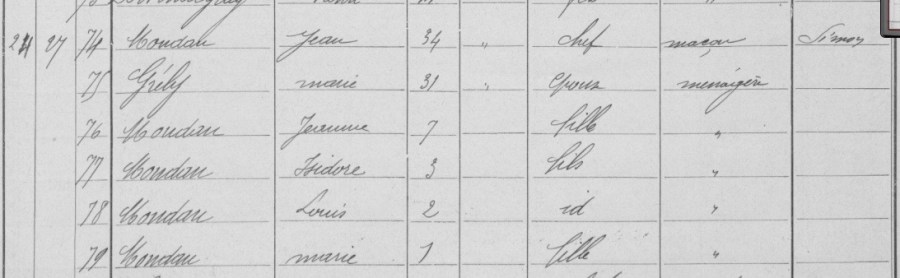 24 27 74 Mondan Jean 34 " chef maçon Simon
75 Grély marie 31 " épouse menagère
76 Mondan Jeanne 7 fille "
77 Mondan Isidore 3 fils "
78 Mondan Louis 2 id "
79 Mondan marie 1 fille "